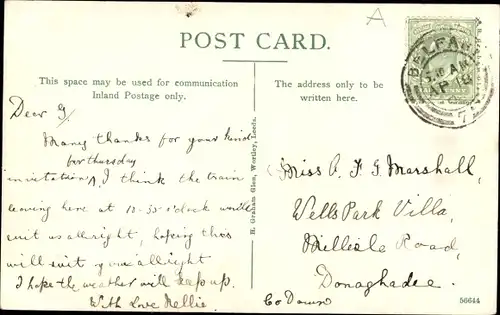 A
POST CARD.
BELFAST
This space may be used for communication
Inland Postage only.
The address only to be
written here.
Dear G/
Many thanks for your kind
for thursday
invitation, I think the train
leaving here at 10-30 o'clock would
suit us allright, hoping this
will suit you allright
I hope the weather will keep up.
With Love Nellie.
H. Graham Glen, Wortley, Leeds.
Miss A F G Marshall,
Wells Park Villa,
Millisle Road,
Donaghadee.
Co Down
56644